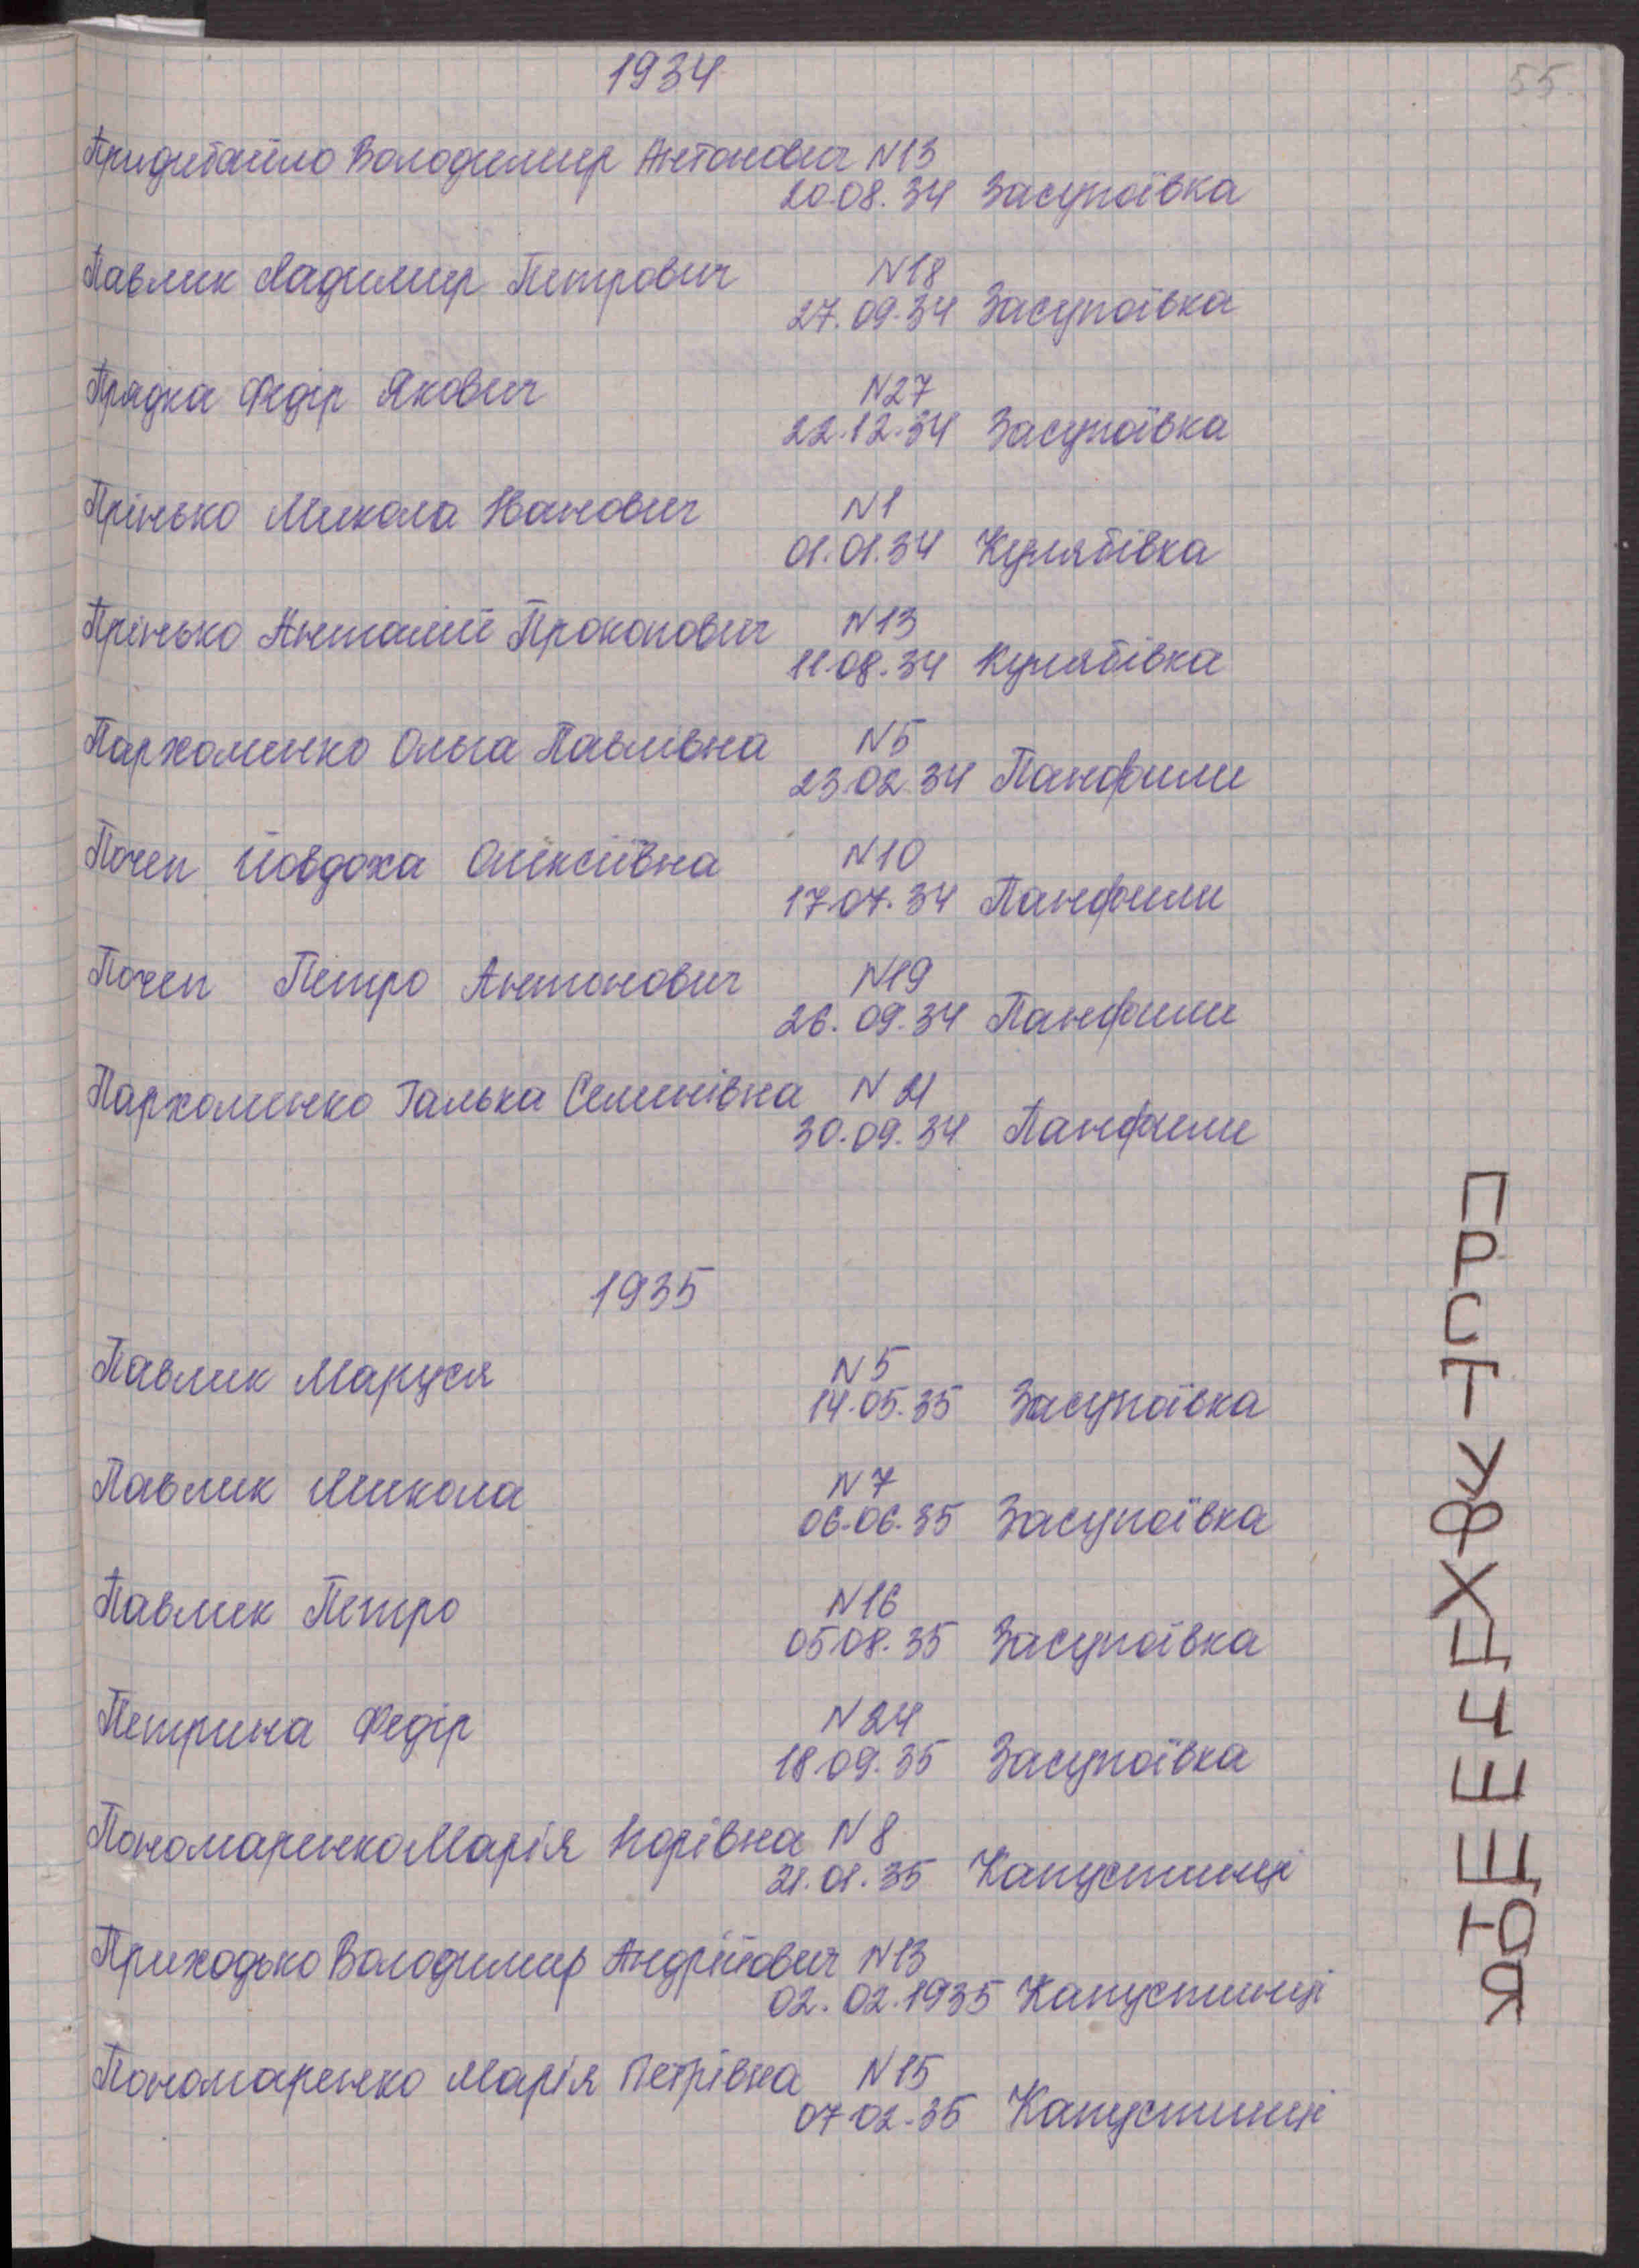 55.
1934
Придибайло Володимир Антонович N13
20.08.34 Засупоївка
Павлик Ладимир Петрович N18
27.09.34 Засупоївка
Прядка Федір Якович N27
22.12.34 Засупоївка
Прінько Микола Іванович N1
01.01.34 Кулябівка
Прінько Анталій Прокопович N13
11.08.34 Кулябівка
Пархоменко Ольга Павлівна N5
23.02.34 Панфили
Почеп Йовдоха Олексіївна N10
17.07.34 Панфили
Почеп Петро Антонович N19
26.09.34 Панфили
Пархоменко Галька Семенівна N21
30.09.34 Панфили
1935
Павлик Маруся N5
14.05.35 Засупоївка
Павлик Микола N7
06.06.35 Засупоївка
Павлик Петро N16
05.08.35 Засупоївка
Петрина Федір N24
18.09.35 Засупоївка
Пономаренко Марія Ігорівна N8
21.01.35 Капустинці
Приходько Володимир Андрійович N13
02.02.1935 Капустинці
Пономаренко Марія Петрівна N15
07.02.35 Капустинці
П
Р
С
Т
У
Ф
Х
Ц
Ч
Ш
Щ
Ю
Я